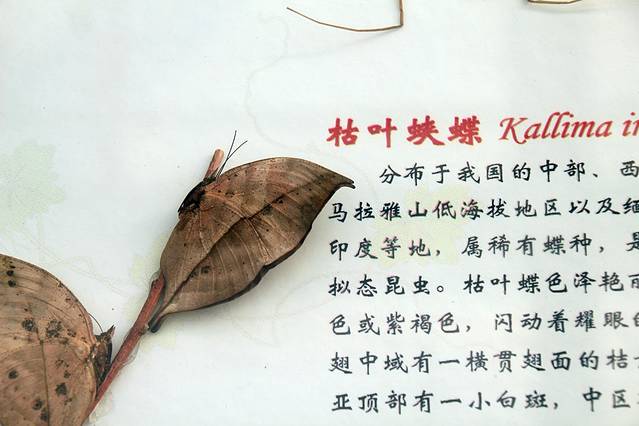 枯叶蛱蝶 Kallima in
分布于我国的中部、西
马拉雅山低海拔地区以及缅
印度等地，属稀有蝶种，是
拟态昆虫。枯叶蝶色泽艳丽
色或紫褐色，闪动着耀眼的
翅中域有一横贯翅面的桔
亚顶部有一小白斑，中区